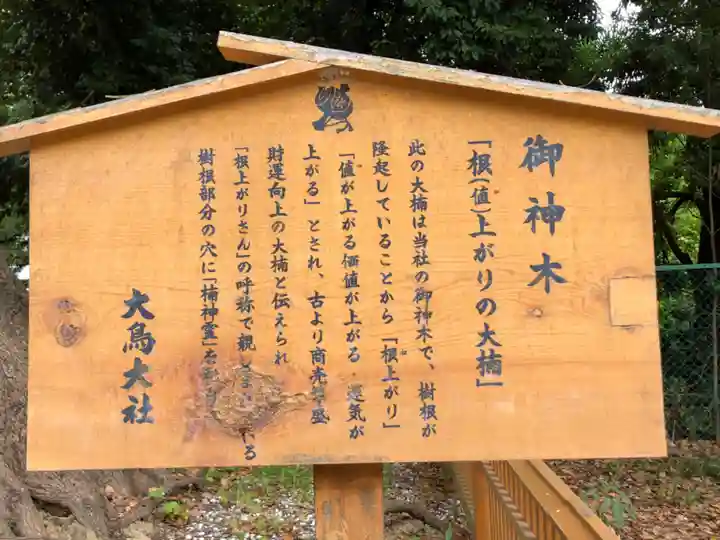 御神木
「根(値)上がりの大楠」
此の大楠は当社の御神木で、樹根が
隆起していることから「根上がり」
「値が上がる価値が上がる・運気が
上がる」とされ、古より商売繁盛
財運向上の大楠と伝えられ
「根上がりさん」の呼称で親しま る
樹根部分の穴に「楠神霊」を
大鳥大社